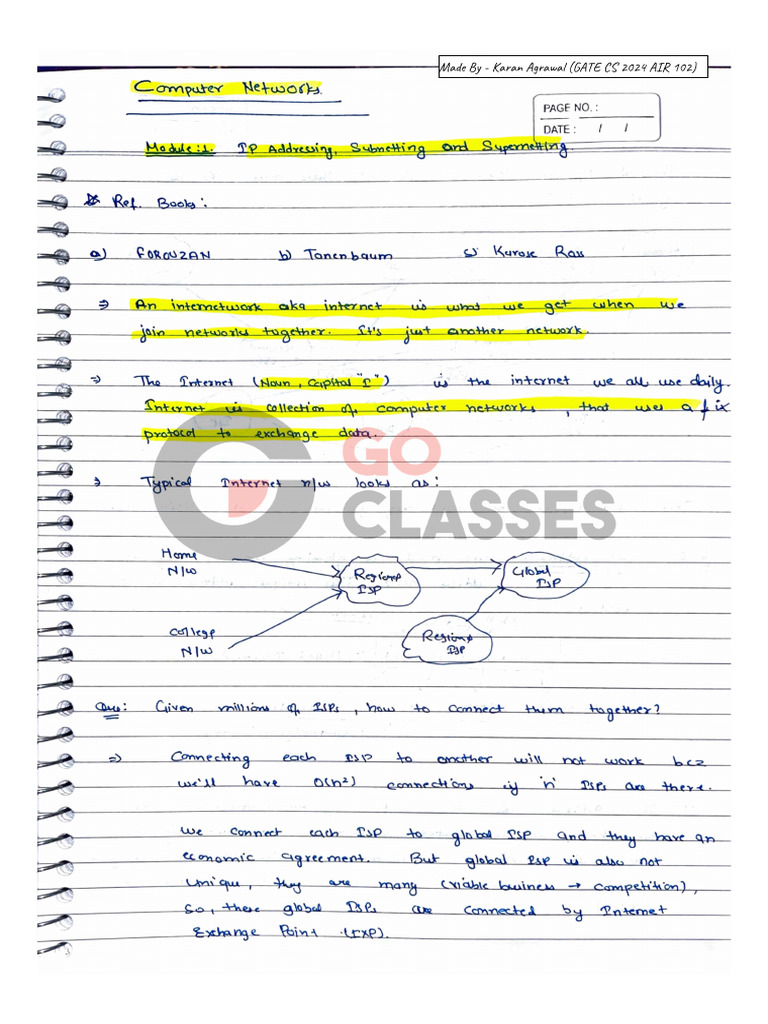 Made By - Karan Agrawal (GATE CS 2024 AIR 102)
Computer Networks.
PAGE NO. :
DATE : / /
Module:1. IP Addressing, Subnetting and Supernetting.
Ref. Books:
a) FOROUZAN b) Tanenbaum c) Kurose Ross
⇒ An internetwork aka internet is what we get when we
join networks together. It's just another network.
⇒ The Internet (Noun, Capital "I") is the internet we all use daily.
Internet is collection of computer networks, that uses a fix
protocol to exchange data.
GO
CLASSES
⇒ Typical Internet n/w looks as:
Home
N/W
Regional
ISP
Global
ISP
College
N/W
Regional
ISP
Que: Given millions of ISPs, how to connect them together?
⇒ Connecting each ISP to another will not work bcz
we'll have O(n²) connections if 'n' ISPs are there.
We connect each ISP to global ISP and they have an
economic agreement. But global ISP is also not
unique, they are many (viable business → competition),
So, these global ISPs are connected by Internet
Exchange Point (IXP).